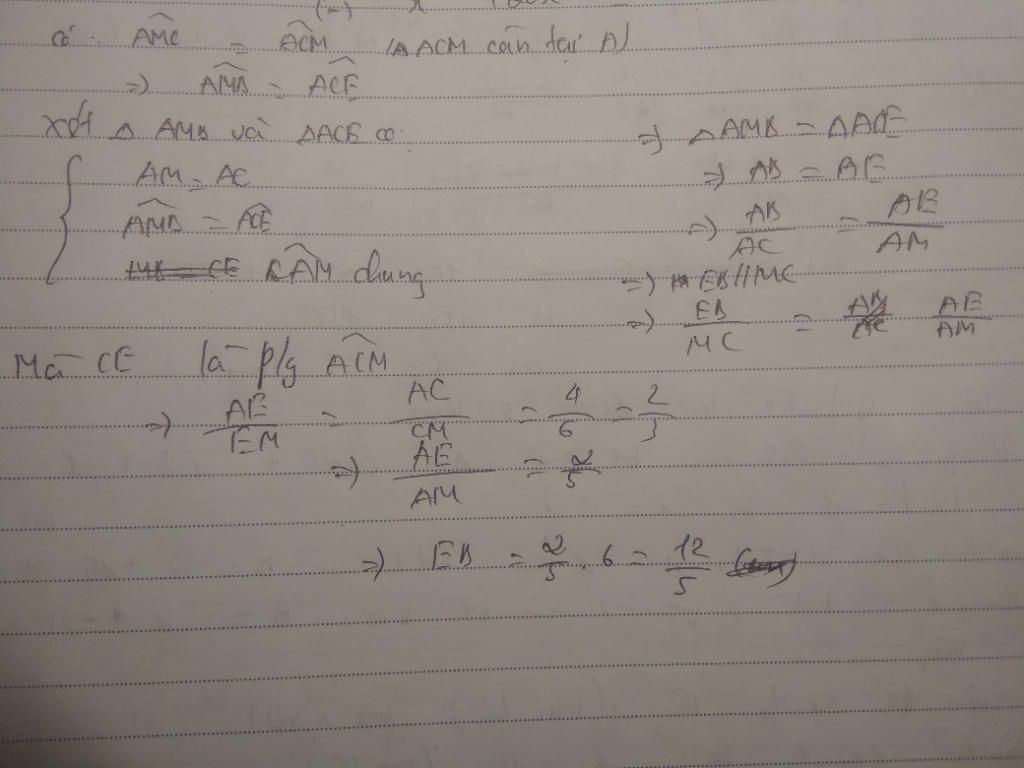 có AMC = ACM (△ ACM cân tại A)
=> AMB = ACE
Xét △ AMB và △ACE có:
AM = AC
AMB = ACE
CAM chung
=> △ AMB = △ACE
=> AB = AE
=> AB/AC = AE/AM
=> EB//MC
=> EB/MC = AE/AM
Mà CE là p/g ACM
=> AE/EM = AC/CM = 4/6 = 2/3
=> AE/AM = 2/5
=> EB = 2/5 . 6 = 12/5